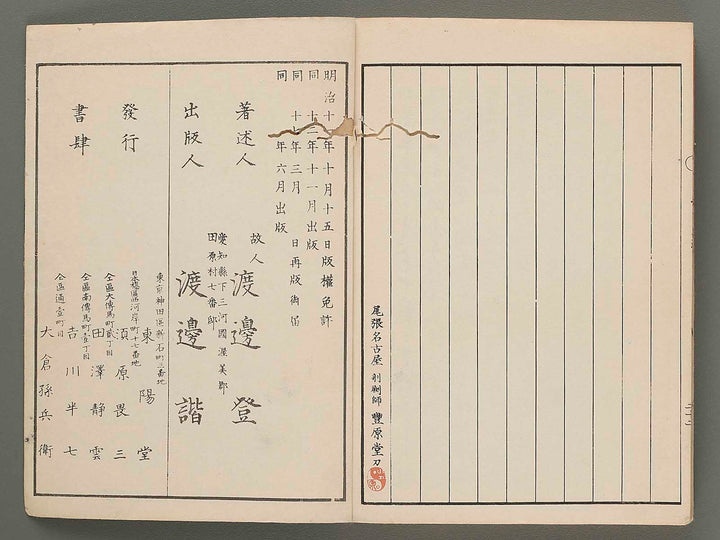 尾張名古屋 剞劂師 豐原堂刀
明治十 年十月十五日版權免許
同 十二年十一月出版
同 十七年三月 日再版御届
同 年六月出版
著述人 故人 渡邊登
愛知縣下三河國渥美郡
田原村七番邸
出版人 渡邊諧
發行
書肆
東京神田區新石町三番地
東陽堂
日本橋區西河岸町十七番地
須原畏三
仝區大傳馬町貳丁目
田澤静雲
仝區南傳馬町壹丁目
吉川半七
仝區通壹町目
大倉孫兵衛